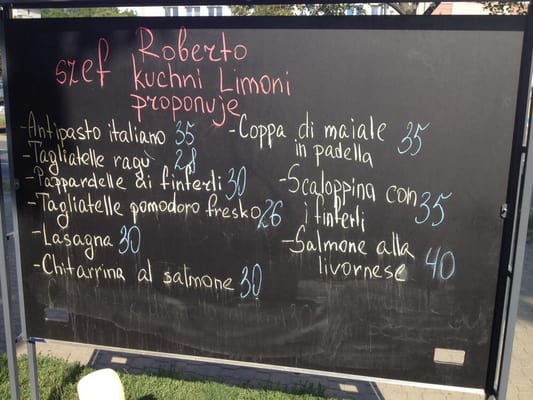 szef Roberto
kuchni Limoni
proponuje
-Antipasto italiano 35
-Tagliatelle ragù 28
-Pappardelle di finferli 30
-Tagliatelle pomodoro fresko 26
-Lasagna 30
-Chitarrina al salmone 30
-Coppa di maiale 35
in padella
-Scaloppina con 35
i finferli
-Salmone alla 40
livornese